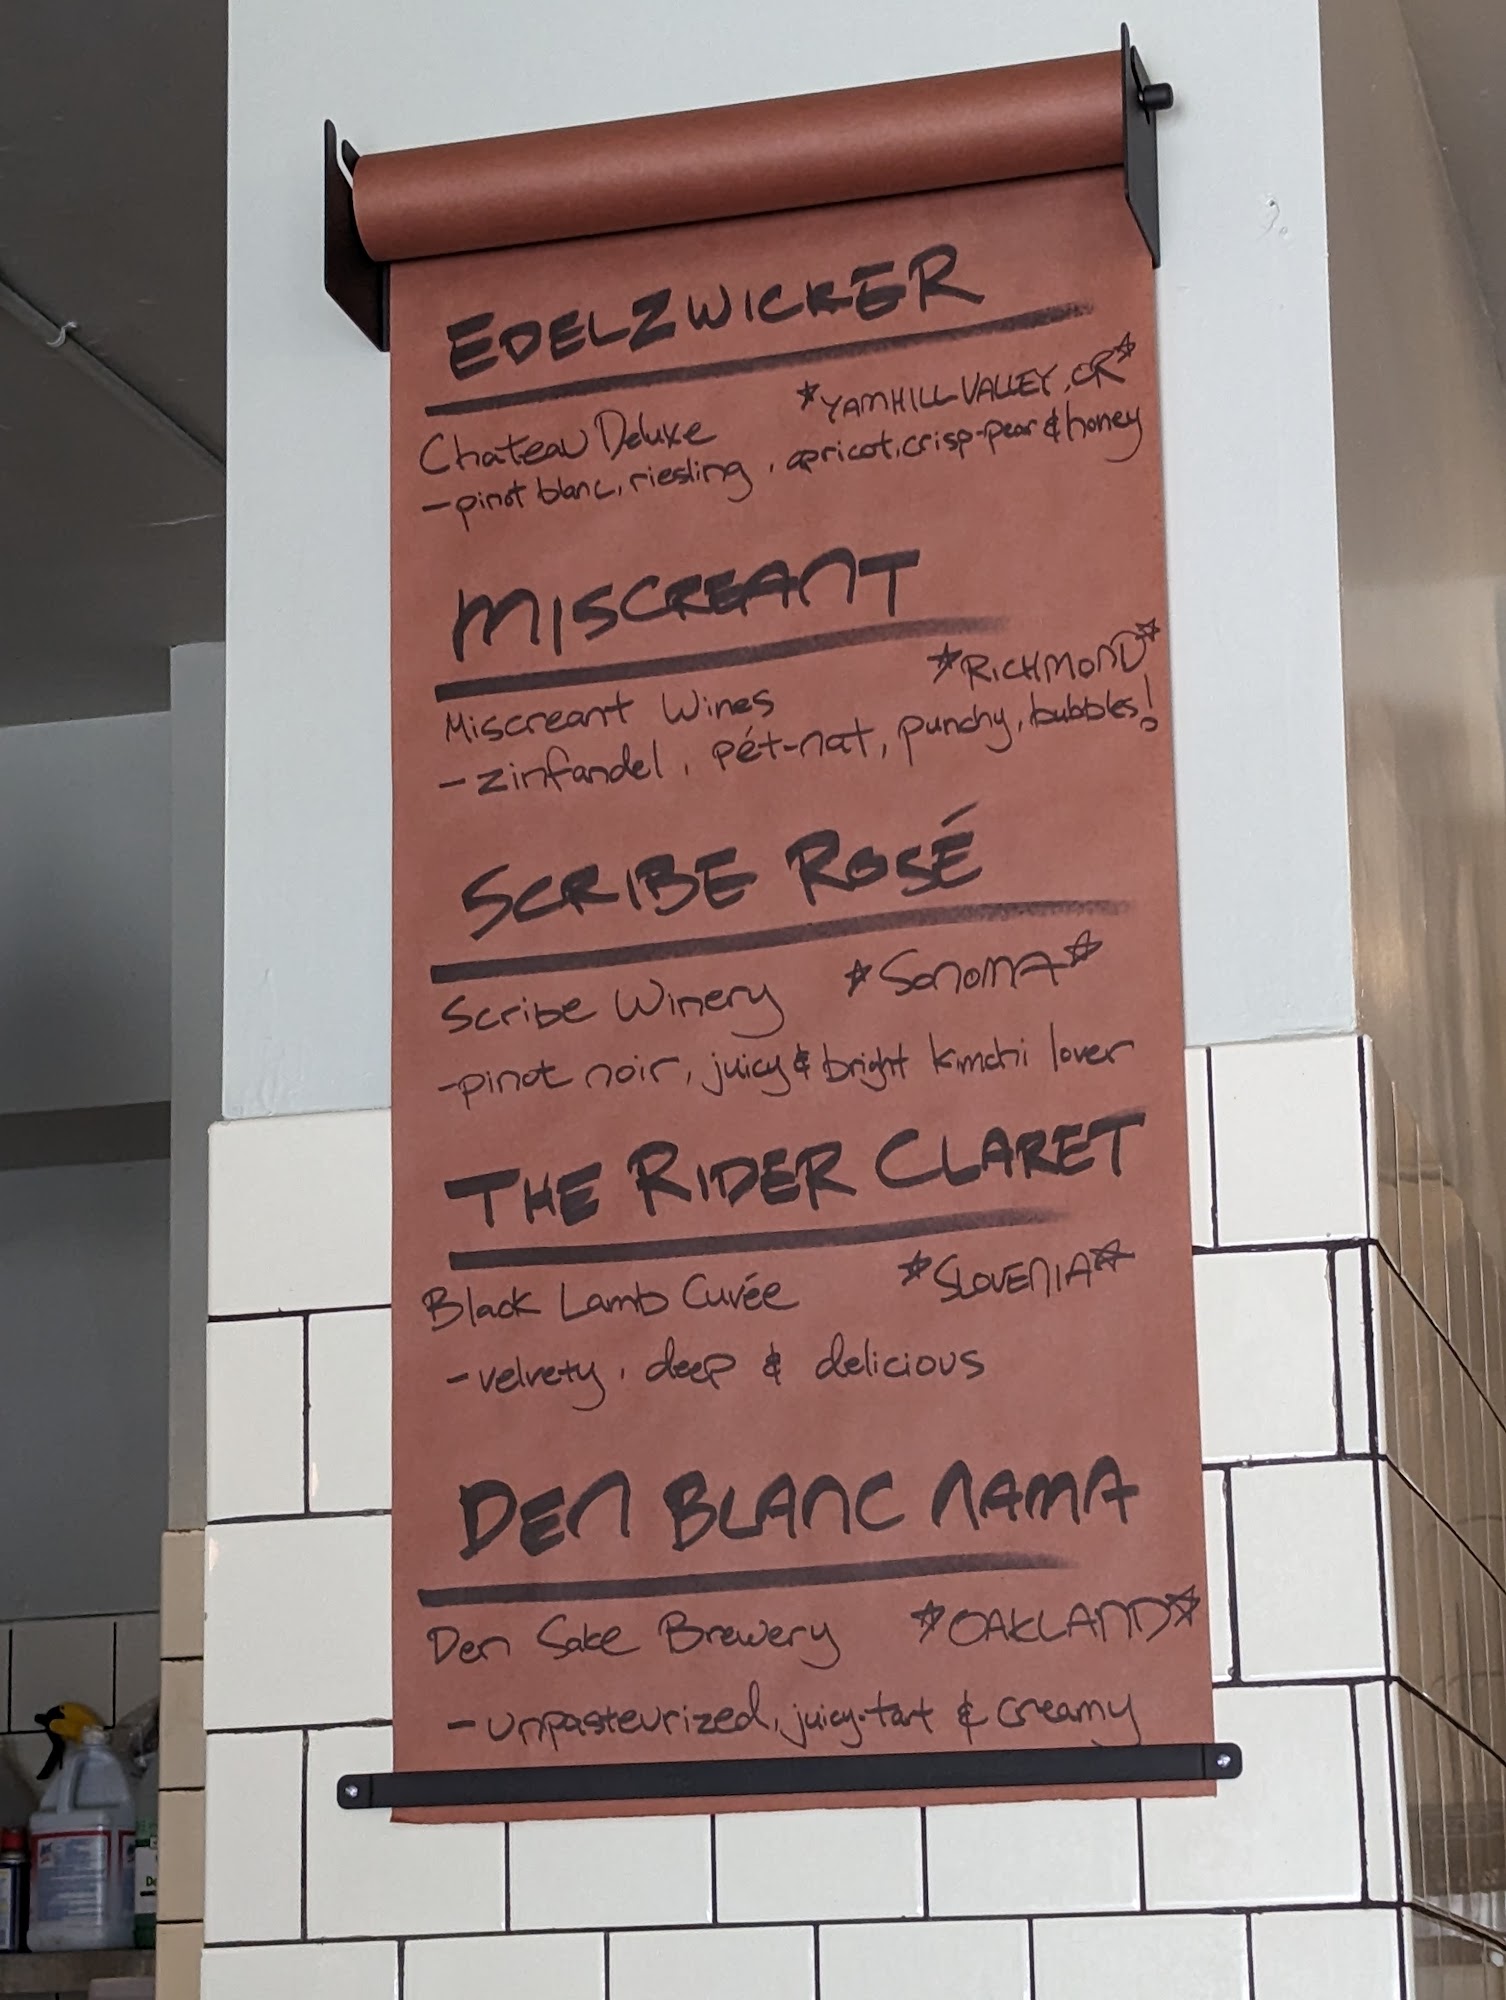 EDELZWICKER
Chateau Deluxe *YAMHILL VALLEY, OR*
-pinot blanc, riesling, apricot, crisp-pear & honey
MISCREANT
Miscreant Wines *RICHMOND*
-zinfandel, pét-nat, punchy, bubbles!
SCRIBE ROSÉ
Scribe Winery *SONOMA*
-pinot noir, juicy & bright kimchi lover
THE RIDER CLARET
Black Lamb Cuvée *SLOVENIA*
-velvety, deep & delicious
DEN BLANC NAMA
Den Sake Brewery *OAKLAND*
-unpasteurized, juicy-tart & creamy